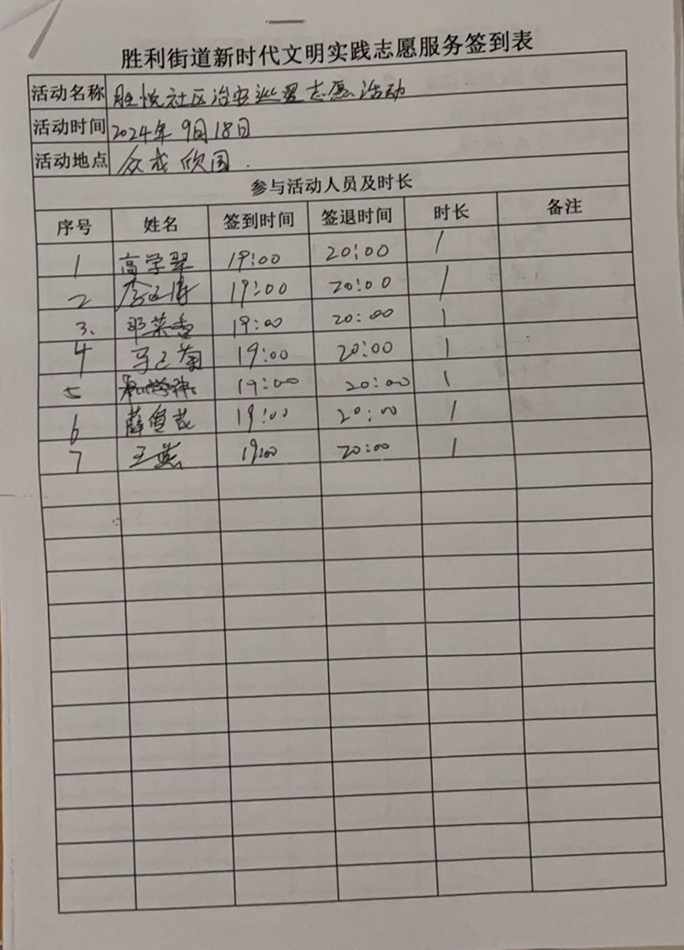 胜利街道新时代文明实践志愿服务签到表
活动名称 胜悦社区治安巡逻志愿活动
活动时间 2024年9月18日
活动地点 众成欣园.
参与活动人员及时长
序号 姓名 签到时间 签退时间 时长 备注
1 高学翠 19:00 20:00 1
2 19:00 20:00 1
3. 邓荣香 19:00 20:00 1
4 马之菊 19:00 20:00 1
5 19:00 20:00 1
6 薛曾茂 19:00 20:00 1
7 王燕 19:00 20:00 1